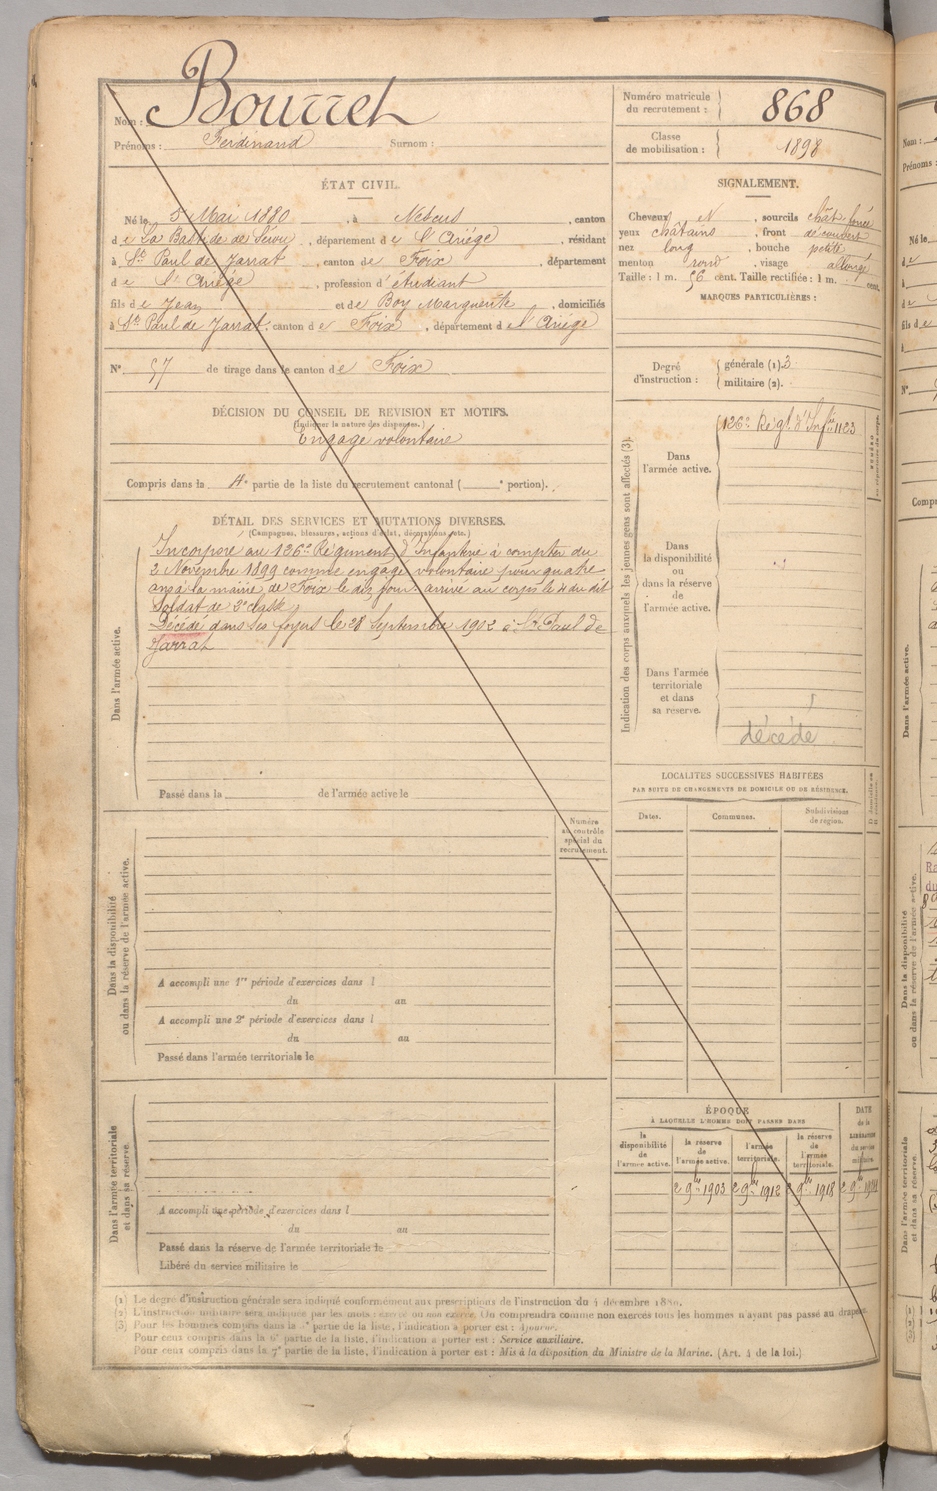 Nom : Bourret
Prénoms : Ferdinand Surnom :
Numéro matricule du recrutement : 868
Classe de mobilisation : 1898
ÉTAT CIVIL.
Né le 5 Mai 1880, à Nescus, canton
de La Bastide de Sérou, département de l'Ariège, résidant
à St Paul de Jarrat, canton de Foix, département
de l'Ariège, profession d'étudiant
fils de Jean et de Boy Marguerite, domiciliés
à St Paul de Jarrat, canton de Foix, département de l'Ariège
N° 57 de tirage dans le canton de Foix
SIGNALEMENT.
Cheveux N, sourcils chât foncé
yeux châtains, front découvert
nez long, bouche petite
menton rond, visage allongé
Taille : 1 m. 56 cent. Taille rectifiée : 1 m. cent.
MARQUES PARTICULIÈRES :
Degré d'instruction : générale (1). 3
militaire (2).
DÉCISION DU CONSEIL DE REVISION ET MOTIFS.
(Indiquer la nature des dispenses.)
Engagé volontaire
Compris dans la 4e partie de la liste du recrutement cantonal ( e portion).
DÉTAIL DES SERVICES ET MUTATIONS DIVERSES.
(Campagnes, blessures, actions d'éclat, décorations, etc.)
Dans l'armée active.
Incorporé au 126e Régiment d'Infanterie à compter du
3 Novembre 1899 comme engagé volontaire pour quatre
ans à la mairie de Foix le dit jour. arrivé au corps le 4 du dit
Soldat de 2e classe
Décédé dans ses foyers le 28 Septembre 1902 à St Paul de
Jarrat
Passé dans la de l'armée active le
Indication des corps auxquels les jeunes gens sont affectés (3).
Dans l'armée active.
126e Régt d'Infrie 1123
Dans la disponibilité ou dans la réserve de l'armée active.
Dans l'armée territoriale et dans sa réserve.
décédé
LOCALITÉS SUCCESSIVES HABITÉES
PAR SUITE DE CHANGEMENTS DE DOMICILE OU DE RÉSIDENCE.
Dates. Communes. Subdivisions de région.
Dans la disponibilité ou dans la réserve de l'armée active.
Numéro au contrôle spécial du recrutement.
A accompli une 1re période d'exercices dans l
du au
A accompli une 2e période d'exercices dans l
du au
Passé dans l'armée territoriale le
Dans l'armée territoriale et dans sa réserve.
A accompli une période d'exercices dans l
du au
Passé dans la réserve de l'armée territoriale le
Libéré du service militaire le
ÉPOQUE
À LAQUELLE L'HOMME DOIT PASSER DANS
la disponibilité de l'armée active.
la réserve de l'armée active.
l'armée territoriale.
la réserve de l'armée territoriale.
DATE de la LIBÉRATION du service militaire.
2 9bre 1903 2 9bre 1912 2 9bre 1918
(1) Le degré d'instruction générale sera indiqué conformément aux prescriptions de l'instruction du 4 décembre 1889.
(2) L'instruction militaire sera indiquée par les mots : exercé ou non exercé. On comprendra comme non exercés tous les hommes n'ayant pas passé au drapeau.
(3) Pour les hommes compris dans la partie de la liste, l'indication à porter est : Ajourné.
Pour ceux compris dans la 6e partie de la liste, l'indication à porter est : Service auxiliaire.
Pour ceux compris dans la 7e partie de la liste, l'indication à porter est : Mis à la disposition du Ministre de la Marine. (Art. 4 de la loi.)